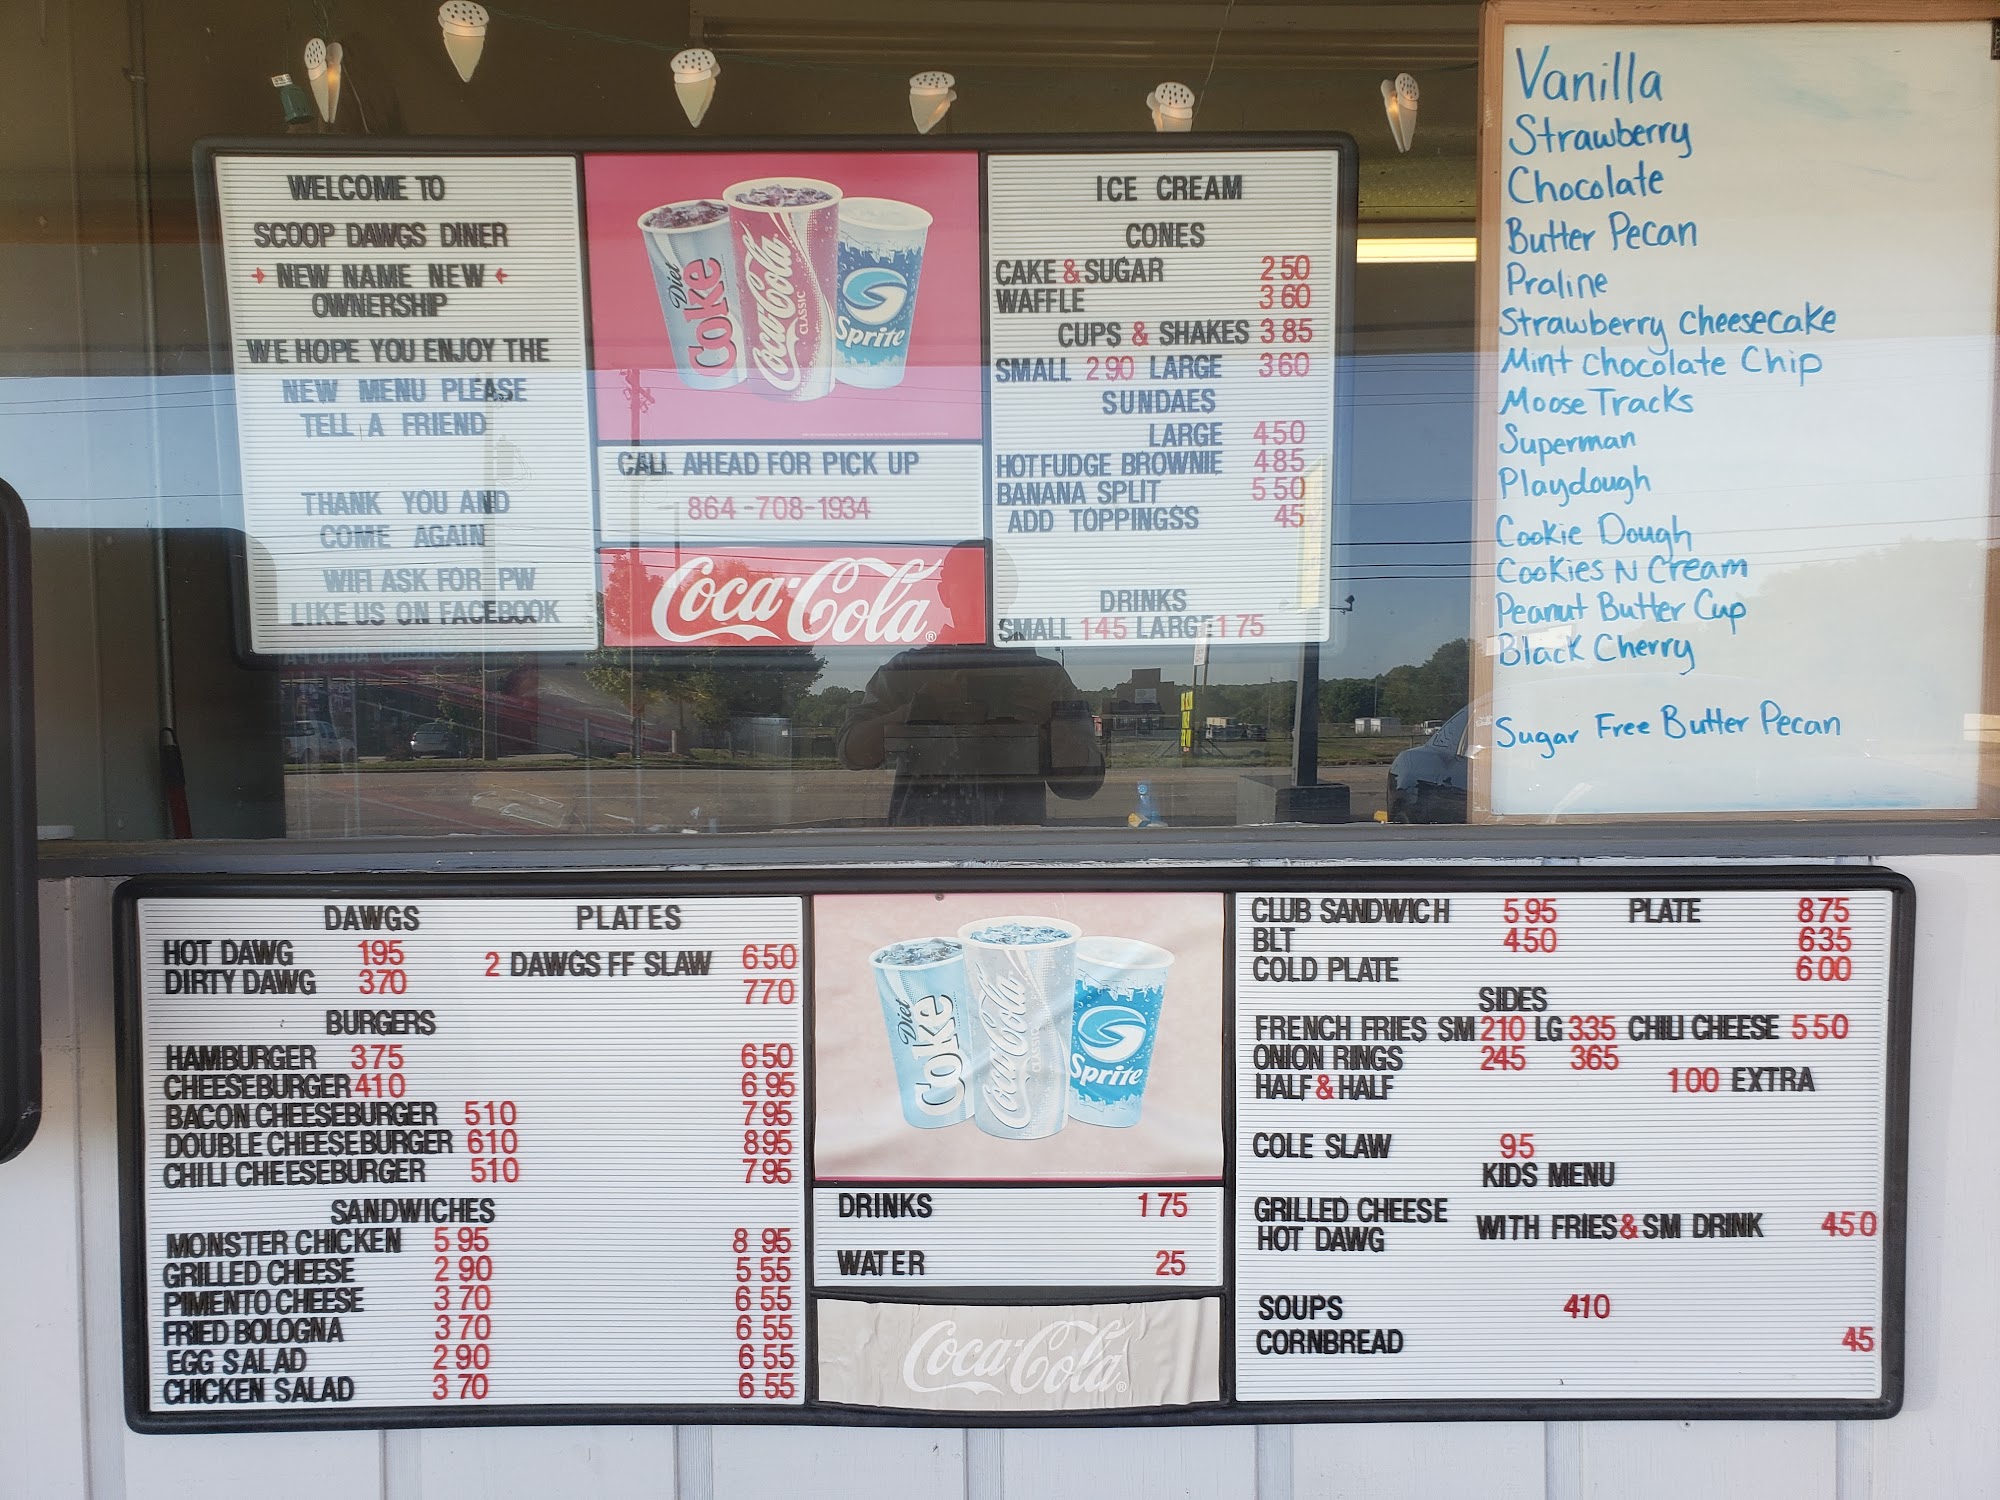 WELCOME TO
SCOOP DAWGS DINER
NEW NAME NEW
OWNERSHIP
WE HOPE YOU ENJOY THE
NEW MENU PLEASE
TELL A FRIEND
THANK YOU AND
COME AGAIN
WIFI ASK FOR PW
LIKE US ON FACEBOOK
Diet Coke
Coca-Cola CLASSIC
Sprite
CALL AHEAD FOR PICK UP
864-708-1934
Coca-Cola
ICE CREAM
CONES
CAKE & SUGAR 2 50
WAFFLE 3 60
CUPS & SHAKES 3 85
SMALL 2 90 LARGE 3 60
SUNDAES
LARGE 4 50
HOT FUDGE BROWNIE 4 85
BANANA SPLIT 5 50
ADD TOPPINGSS 45
DRINKS
SMALL 1 45 LARGE 1 75
Vanilla
Strawberry
Chocolate
Butter Pecan
Praline
Strawberry Cheesecake
Mint Chocolate Chip
Moose Tracks
Superman
Playdough
Cookie Dough
Cookies N Cream
Peanut Butter Cup
Black Cherry
Sugar Free Butter Pecan
DAWGS PLATES
HOT DAWG 195 2 DAWGS FF SLAW 650
DIRTY DAWG 370 770
BURGERS
HAMBURGER 375 650
CHEESEBURGER 410 6 95
BACON CHEESEBURGER 510 795
DOUBLE CHEESEBURGER 610 895
CHILI CHEESEBURGER 510 795
SANDWICHES
MONSTER CHICKEN 5 95 8 95
GRILLED CHEESE 2 90 5 55
PIMENTO CHEESE 3 70 6 55
FRIED BOLOGNA 3 70 6 55
EGG SALAD 2 90 6 55
CHICKEN SALAD 3 70 6 55
Diet Coke
Coca-Cola CLASSIC
Sprite
DRINKS 1 75
WATER 25
Coca-Cola
CLUB SANDWICH 5 95 PLATE 875
BLT 450 635
COLD PLATE 600
SIDES
FRENCH FRIES SM 210 LG 335 CHILI CHEESE 5 50
ONION RINGS 245 365
HALF & HALF 100 EXTRA
COLE SLAW 95
KIDS MENU
GRILLED CHEESE
HOT DAWG WITH FRIES & SM DRINK 450
SOUPS 410
CORNBREAD 45